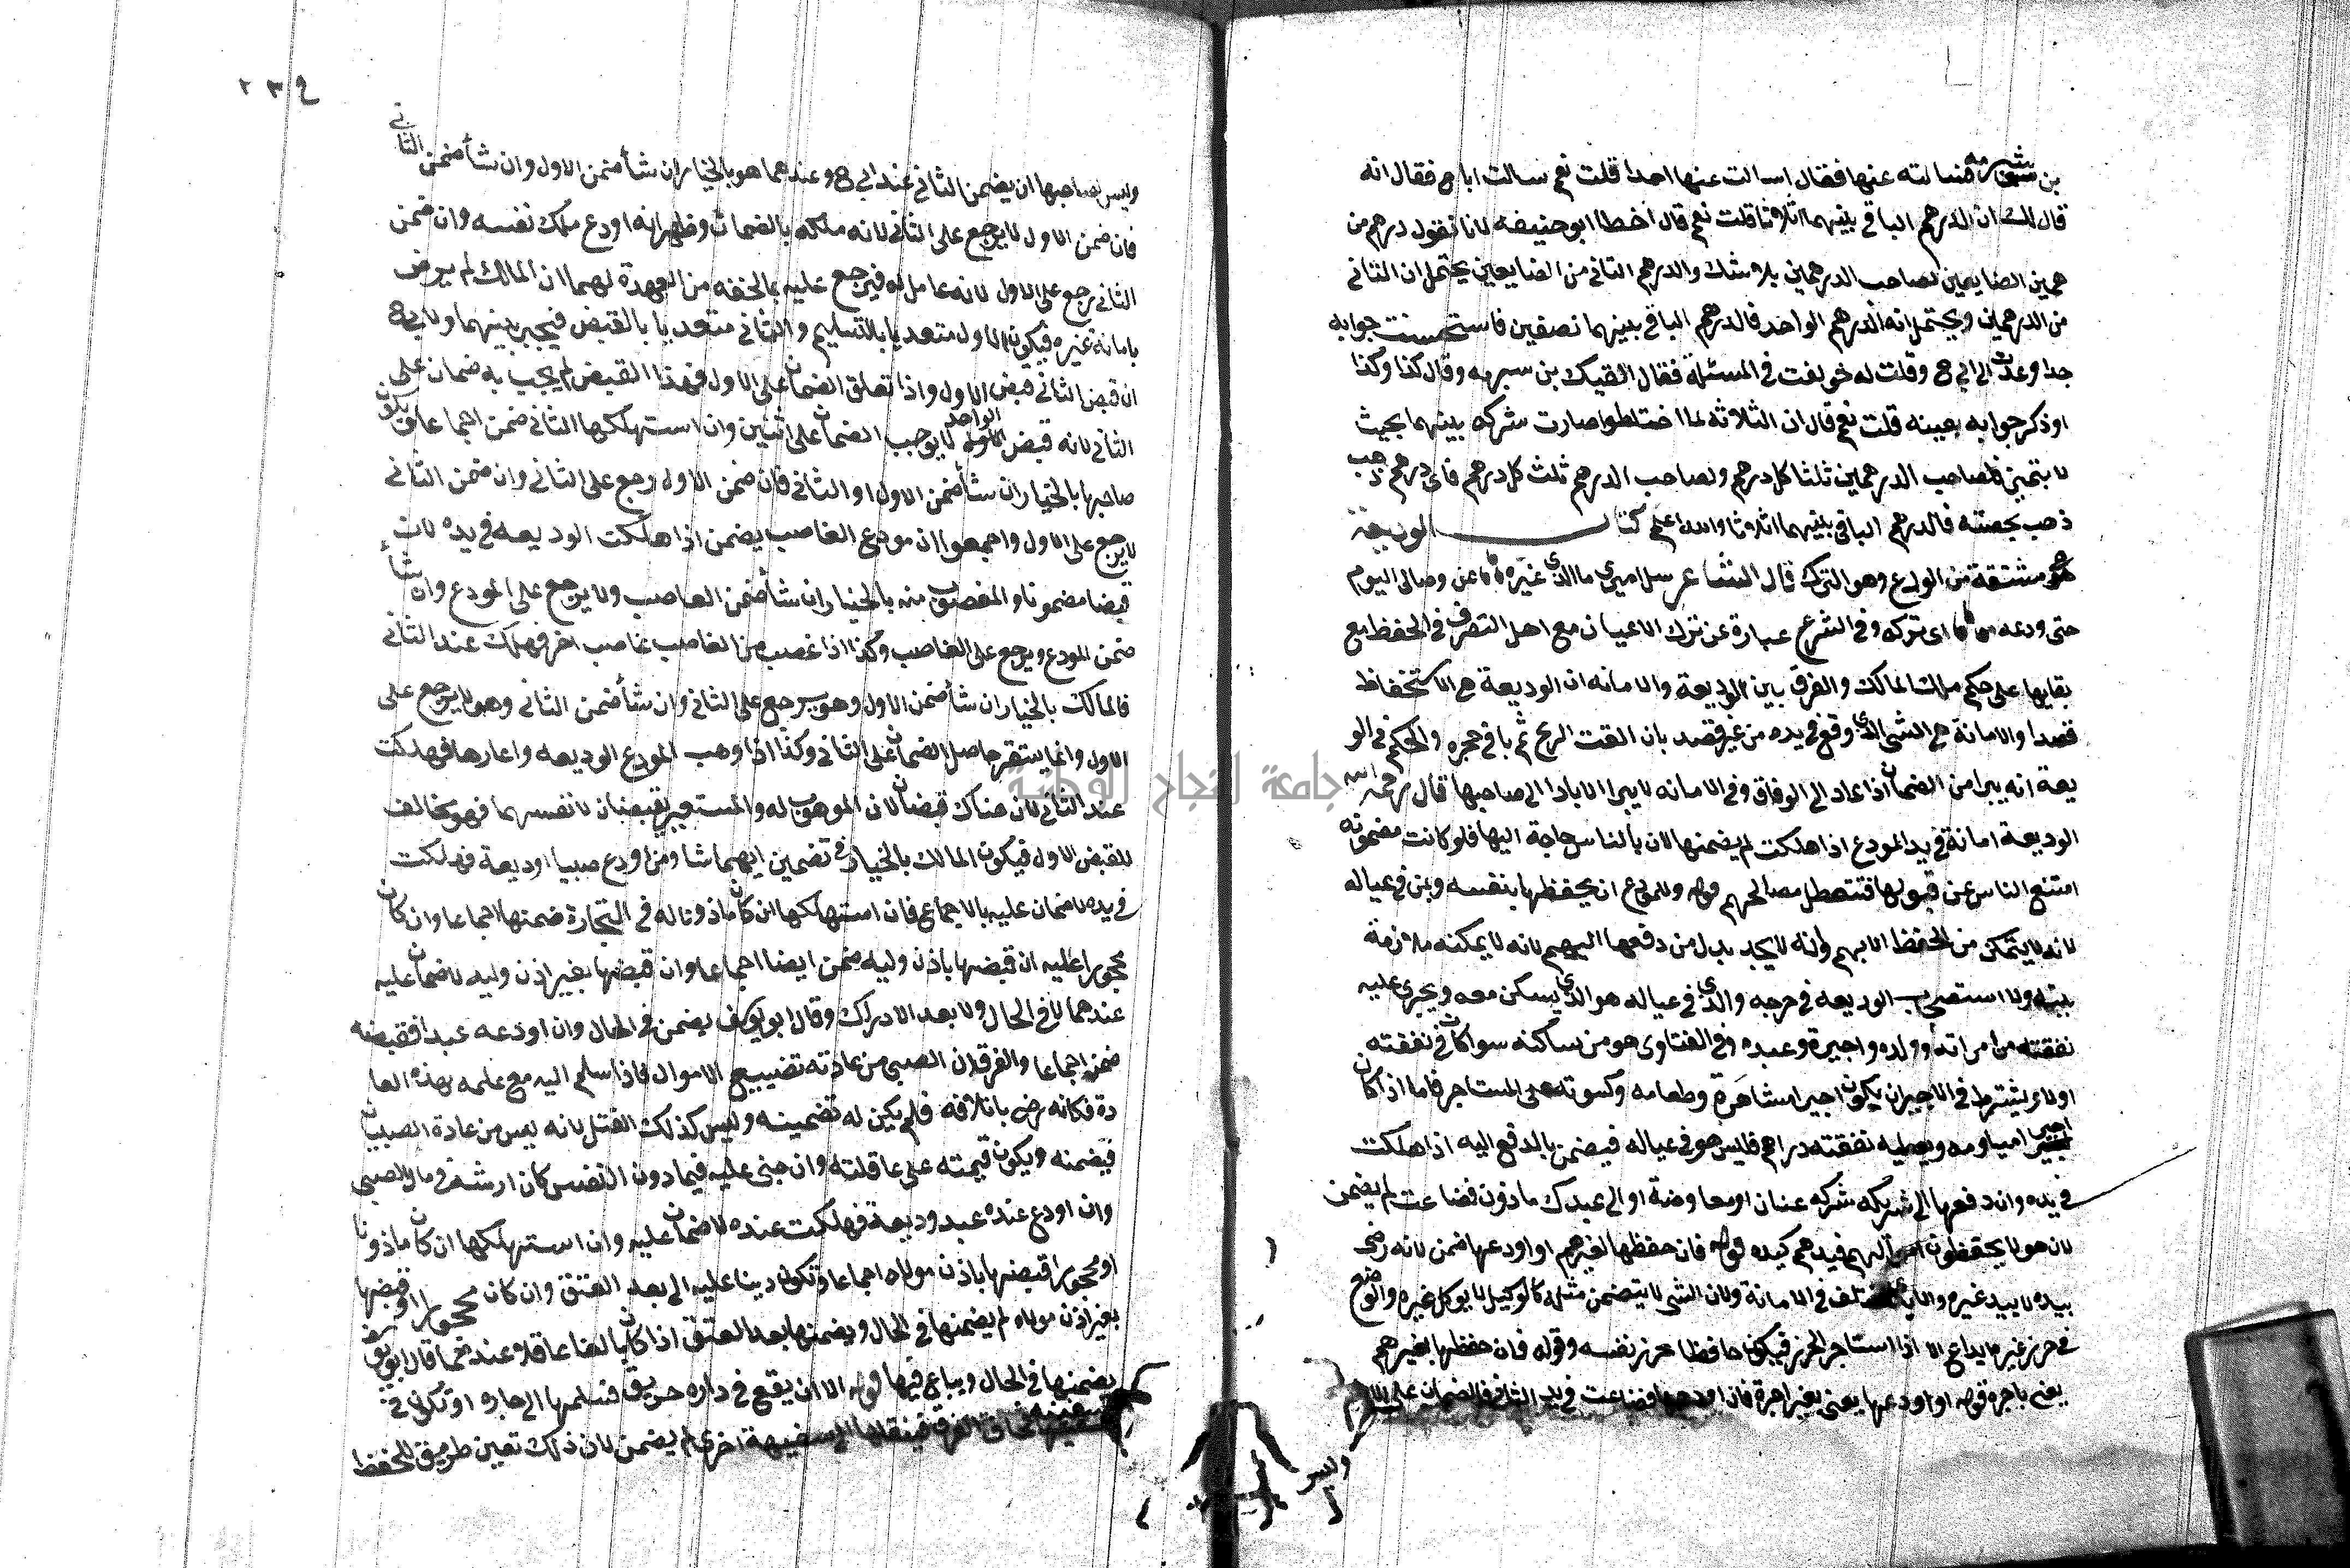 بن شبرمه فسالته عنها فقال اسالت عنها احدا قلت نعم سالت ابا ح فقال انه
قال لك ان الدرهم الباقي بينهما اثلاثا قلت نعم قال اخطا ابو حنيفه لانا نقول درهم من
همين الضايعين لصاحب الدرهمين بلا شك والدرهم الثاني من الضايعين يحتمل ان الثاني
من الدرهمين ويحتمل انه الدرهم الواحد فالدرهم الباقي بينهما نصفين فاستحسنت جوابه
جدا وعدت الى ابي ح وقلت له خولفت في المسئلة فقال القيك بن سبرمه وقال كذا وكذا
اوذكر جوابه بعينه قلت نعم قال ان الثلاثه لما اختلطوا صارت شركه بينهما بحيث
لا يتميز فلصاحب الدرهمين ثلثا كل درهم ولصاحب الدرهم ثلث كل درهم فاي درهم ذهب
ذهب بحصته فالدرهم الباقي بينهما اثلاثا والله اعلم كتاب الوديعة
هي مشتقة من الودع وهو الترك قال الشاعر سل اميري ما الذي غيره عن وصالي اليوم
حتى ودعه اى تركه وفي الشرع عبارة عن ترك الاعيان مع اهل التصرف في الحفظ مع
بقايها على حكم ملك المالك والفرق بين الوديعة والامانه ان الوديعة هي الاستحفاظ
قصدا والامانة هي الشي الذي وقع في يده من غير قصد بان القت الريح ثوبا في حجره والحكم في الو
يعة انه يبرا من الضمان اذا عاد الى الوفاق وفي الامانه لا يبرا الا بادا الى صاحبها قال رحمه الله
الوديعة امانة في يد المودع اذا هلكت لم يضمنها لان بالناس حاجة اليها فلو كانت مضمونه
امتنع الناس عن قبولها فتتعطل مصالحهم قوله وللمودع ان يحفظها بنفسه وبمن في عياله
لانه لا يتمكن من الحفظ الا بهم ولانه لا يجد بدل من دفعها اليهم لانه لا يمكنه ملازمة
بيته ولا استصحاب الوديعه في خرجه والذي في عياله هو الذي يسكن معه ويجرى عليه
نفقته من امراته وولده واجيره وعبده وفي الفتاوى هو من ساكنه سوا كان في نفقته
اولا ويشترط في الاجير ان يكون اجيرا مشاهرة وطعامه وكسوته على المستاجر فاما اذا كان
اجيرا مياومه ويعطيه نفقته دراهم فليس هو في عياله فيضمن بالدفع اليه اذا هلكت
في يده وان دفعها الى شريكه شركه عنان او معاوضة او الى عبدك ماذون فضاعت لم يضمن
لان هولا يحفظون فيدهم كيده قوله فان حفظها بغيرهم او اودعها ضمن لانه رضي
بيده لا بيد غيره والايدي تختلف في الامانة ولان الشي لا يتضمن مثله كالوكيل لا يوكل غيره والوضع
في حرز غيره ايداع الا اذا استاجر الحرز فيكون حافظا بحرز نفسه وقوله فان حفظها بغيرهم
يعني باجره قوله او اودعها يعني بغير اجرة فان اودعها فضاعت في يد الثاني فالضمان على الاول
وليس
٢٣٤
وليس لصاحبها ان يضمن الثاني عند ابي ح وعندهما هو بالخيار ان شا ضمن الاول وان شا ضمن الثاني
فان ضمن الاول لا يرجع على الثاني لانه ملكه بالضمان وظهر انه اودع ملك نفسه وان ضمن
الثاني رجع على الاول لانه عامل له فيرجع عليه بما لحقه من العهدة لهما ان المالك لم يرض
بامانة غيره فيكون الاول متعديا بالتسليم والثاني متعديا بالقبض فيخير بينهما ولابي ح
ان قبض الثاني قبض الاول واذا تعلق الضمان على الاول فهذا القبض لم يجب به ضمان على
الثاني لانه قبض الواحد لا يوجب الضمان على اثنين وان استهلكها الثاني ضمن اجماعا ويكون
صاحبها بالخيار ان شا ضمن الاول او الثاني فان ضمن الاول رجع على الثاني وان ضمن الثاني
لا يرجع على الاول واجمعوا ان مودع الغاصب يضمن اذا هلكت الوديعه في يده لان
قبضا مضمونا والمغصوب منه بالخيار ان شا ضمن الغاصب ولا يرجع على المودع وان شا
ضمن المودع ويرجع على الغاصب وكذا اذا غصب من الغاصب غاصب اخر فهلك عند الثاني
فالمالك بالخيار ان شا ضمن الاول وهو يرجع على الثاني وان شا ضمن الثاني وهو لا يرجع على
الاول وانما يستقر حاصل الضمان على الثاني وكذا اذا وهب المودع الوديعه واعارها فهلكت
عند الثاني لان هناك قبضان لان الموهوب له والمستعير يقبضان لانفسهما فهو مخالف
للقبض الاول فيكون المالك بالخيار في تضمين ايهما شا ومن اودع صبيا اوديعة فهلكت
في يده لا ضمان عليه بالاجماع فان استهلكها ان كان ماذونا له في التجارة ضمنها اجماعا وان كان
محجورا عليه ان قبضها باذن وليه ضمن ايضا اجماعا وان قبضها بغير اذن وليه لا ضمان عليه
عندهما لا في الحال ولا بعد الادراك وقال ابو يوسف يضمن في الحال وان اودعه عبدا فقبضه
ضمن اجماعا والفرق ان الصبي من عادته تضييع الاموال فاذا سلم اليه مع علمه بهذه العا
دة فكانه رضي باتلافه فلم يكن له تضمينه وليس كذلك القتل لانه ليس من عادة الصبيان
فيضمنه ويكون قيمته على عاقلته وان جنى عليه فيما دون النفس كان ارشه في مال الصبي
وان اودع عنده عبد وديعة فهلكت عنده لا ضمان عليه وان استهلكها ان كان ماذونا
او محجورا قبضها باذن مولاه اجماعا وتكون دينا عليه الى بعد العتق وان كان محجورا او قبضها
بغير اذن مولاه لم يضمنها في الحال ويضمنها بعد العتق اذا كان بالغا عاقلا عندهما قال ابو يوسف
يضمنها في الحال ويباع فيها قوله الا ان يقع في داره حريق فتسلمها الى جاره او تكون في
سفينه فخاف الغرق فينقلها الى سفينة اخرى لم يضمن لان ذلك تعين طريق للحفظ
جامعة النجاح الوطنية